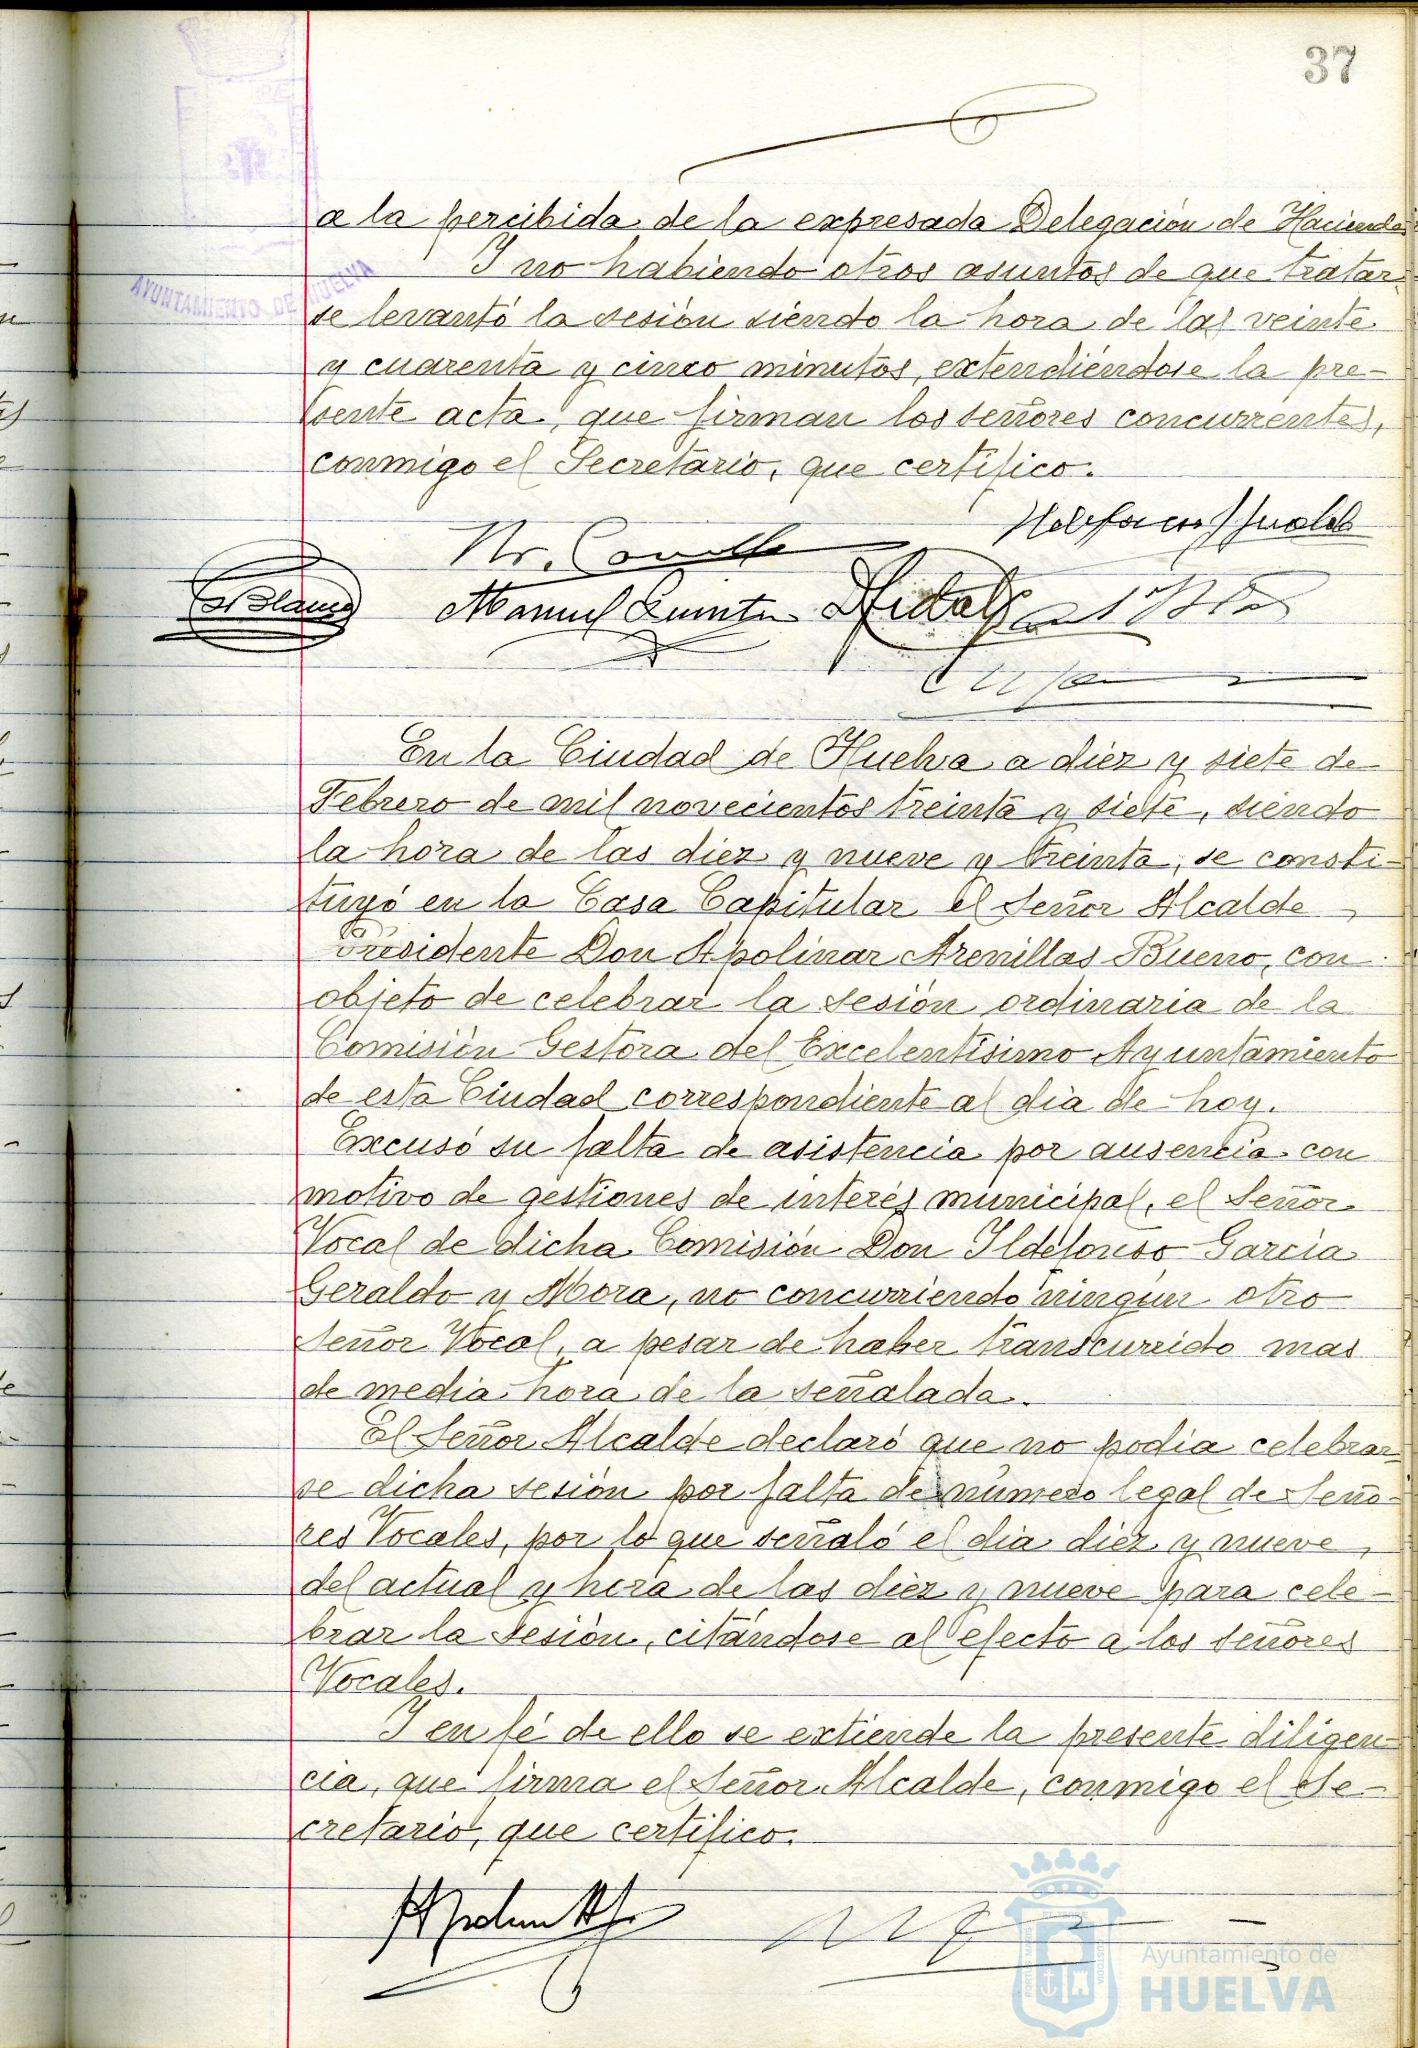 37
AYUNTAMIENTO DE HUELVA
a la percibida de la expresada Delegación de Hacienda.
Y no habiendo otros asuntos de que tratar
se levantó la sesión siendo la hora de las veinte
y cuarenta y cinco minutos, extendiéndose la pre-
sente acta, que firman los señores concurrentes,
conmigo el Secretario, que certifico.
Blanco
Manuel Quintero Hidalgo
En la Ciudad de Huelva a diez y siete de
Febrero de mil novecientos treinta y siete, siendo
la hora de las diez y nueve y treinta, se consti-
tuyó en la Casa Capitular el Señor Alcalde
Presidente Don Apolinar Arenillas Bueno, con
objeto de celebrar la sesión ordinaria de la
Comisión Gestora del Excelentísimo Ayuntamiento
de esta Ciudad correspondiente al día de hoy.
Excusó su falta de asistencia por ausencia con
motivo de gestiones de interés municipal, el Señor
Vocal de dicha Comisión Don Ildefonso García
Geraldo y Mora, no concurriendo ningún otro
Señor Vocal, a pesar de haber transcurrido mas
de media hora de la señalada.
El Señor Alcalde declaró que no podía celebrar-
se dicha sesión por falta de número legal de Seño-
res Vocales, por lo que señaló el día diez y nueve
del actual y hora de las diez y nueve para cele-
brar la sesión, citándose al efecto a los señores
Vocales.
Y en fé de ello se extiende la presente diligen-
cia, que firma el Señor Alcalde, conmigo el Se-
cretario, que certifico.
Ayuntamiento de
HUELVA